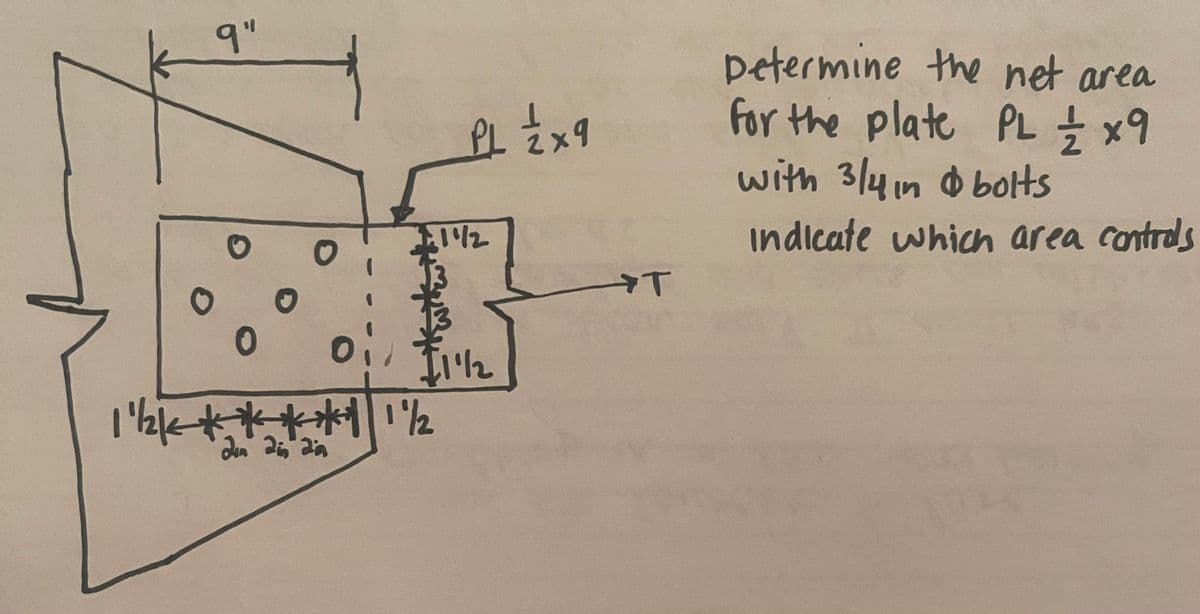 9"
PL 1/2 x9
Determine the net area
for the plate PL 1/2 x9
with 3/4 in φ bolts
indicate which area controls
1 1/2
3
3
1 1/2
T
1 1/2
2in 2in 2in
1 1/2